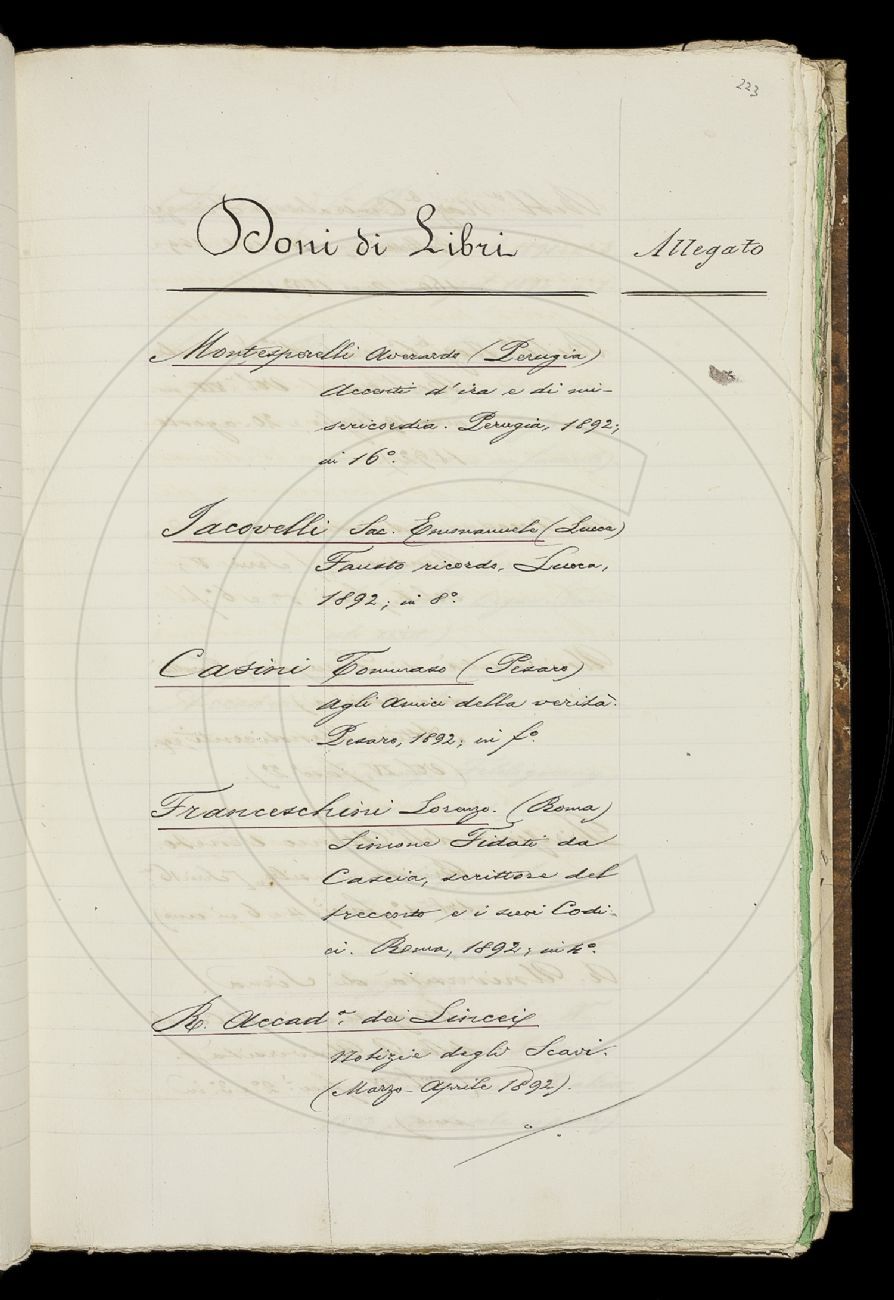 223
Doni di Libri
Allegato
Montesperelli Averardo (Perugia)
Accenti d'ira e di mi-
sericordia. Perugia, 1892;
in 16°.
Iacovelli Sac. Emmanuele (Lucca)
Fausto ricordo, Lucca,
1892; in 8°.
Casini Tommaso (Pesaro)
Agli Amici della verità.
Pesaro, 1892; in f°.
Franceschini Lorenzo. (Roma)
Simone Fidati da
Cascia, scrittore del
trecento e i suoi Codi-
ci. Roma, 1892; in 4°.
R. Accad.ª dei Lincei
Notizie degli Scavi.
(Marzo-Aprile 1892).